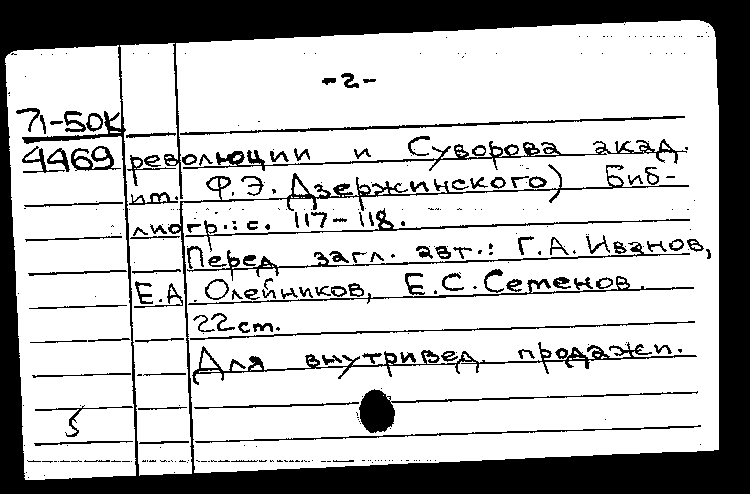 -2-
71-50К
4469 революции и Суворова акад.
им. Ф.Э. Дзержинского) Биб-
лиогр.: с. 117-118.
Перед загл. авт.: Г.А. Иванов,
Е.А. Олейников, Е.С. Семенов.
22 см.
Для внутривед. продажи.
5